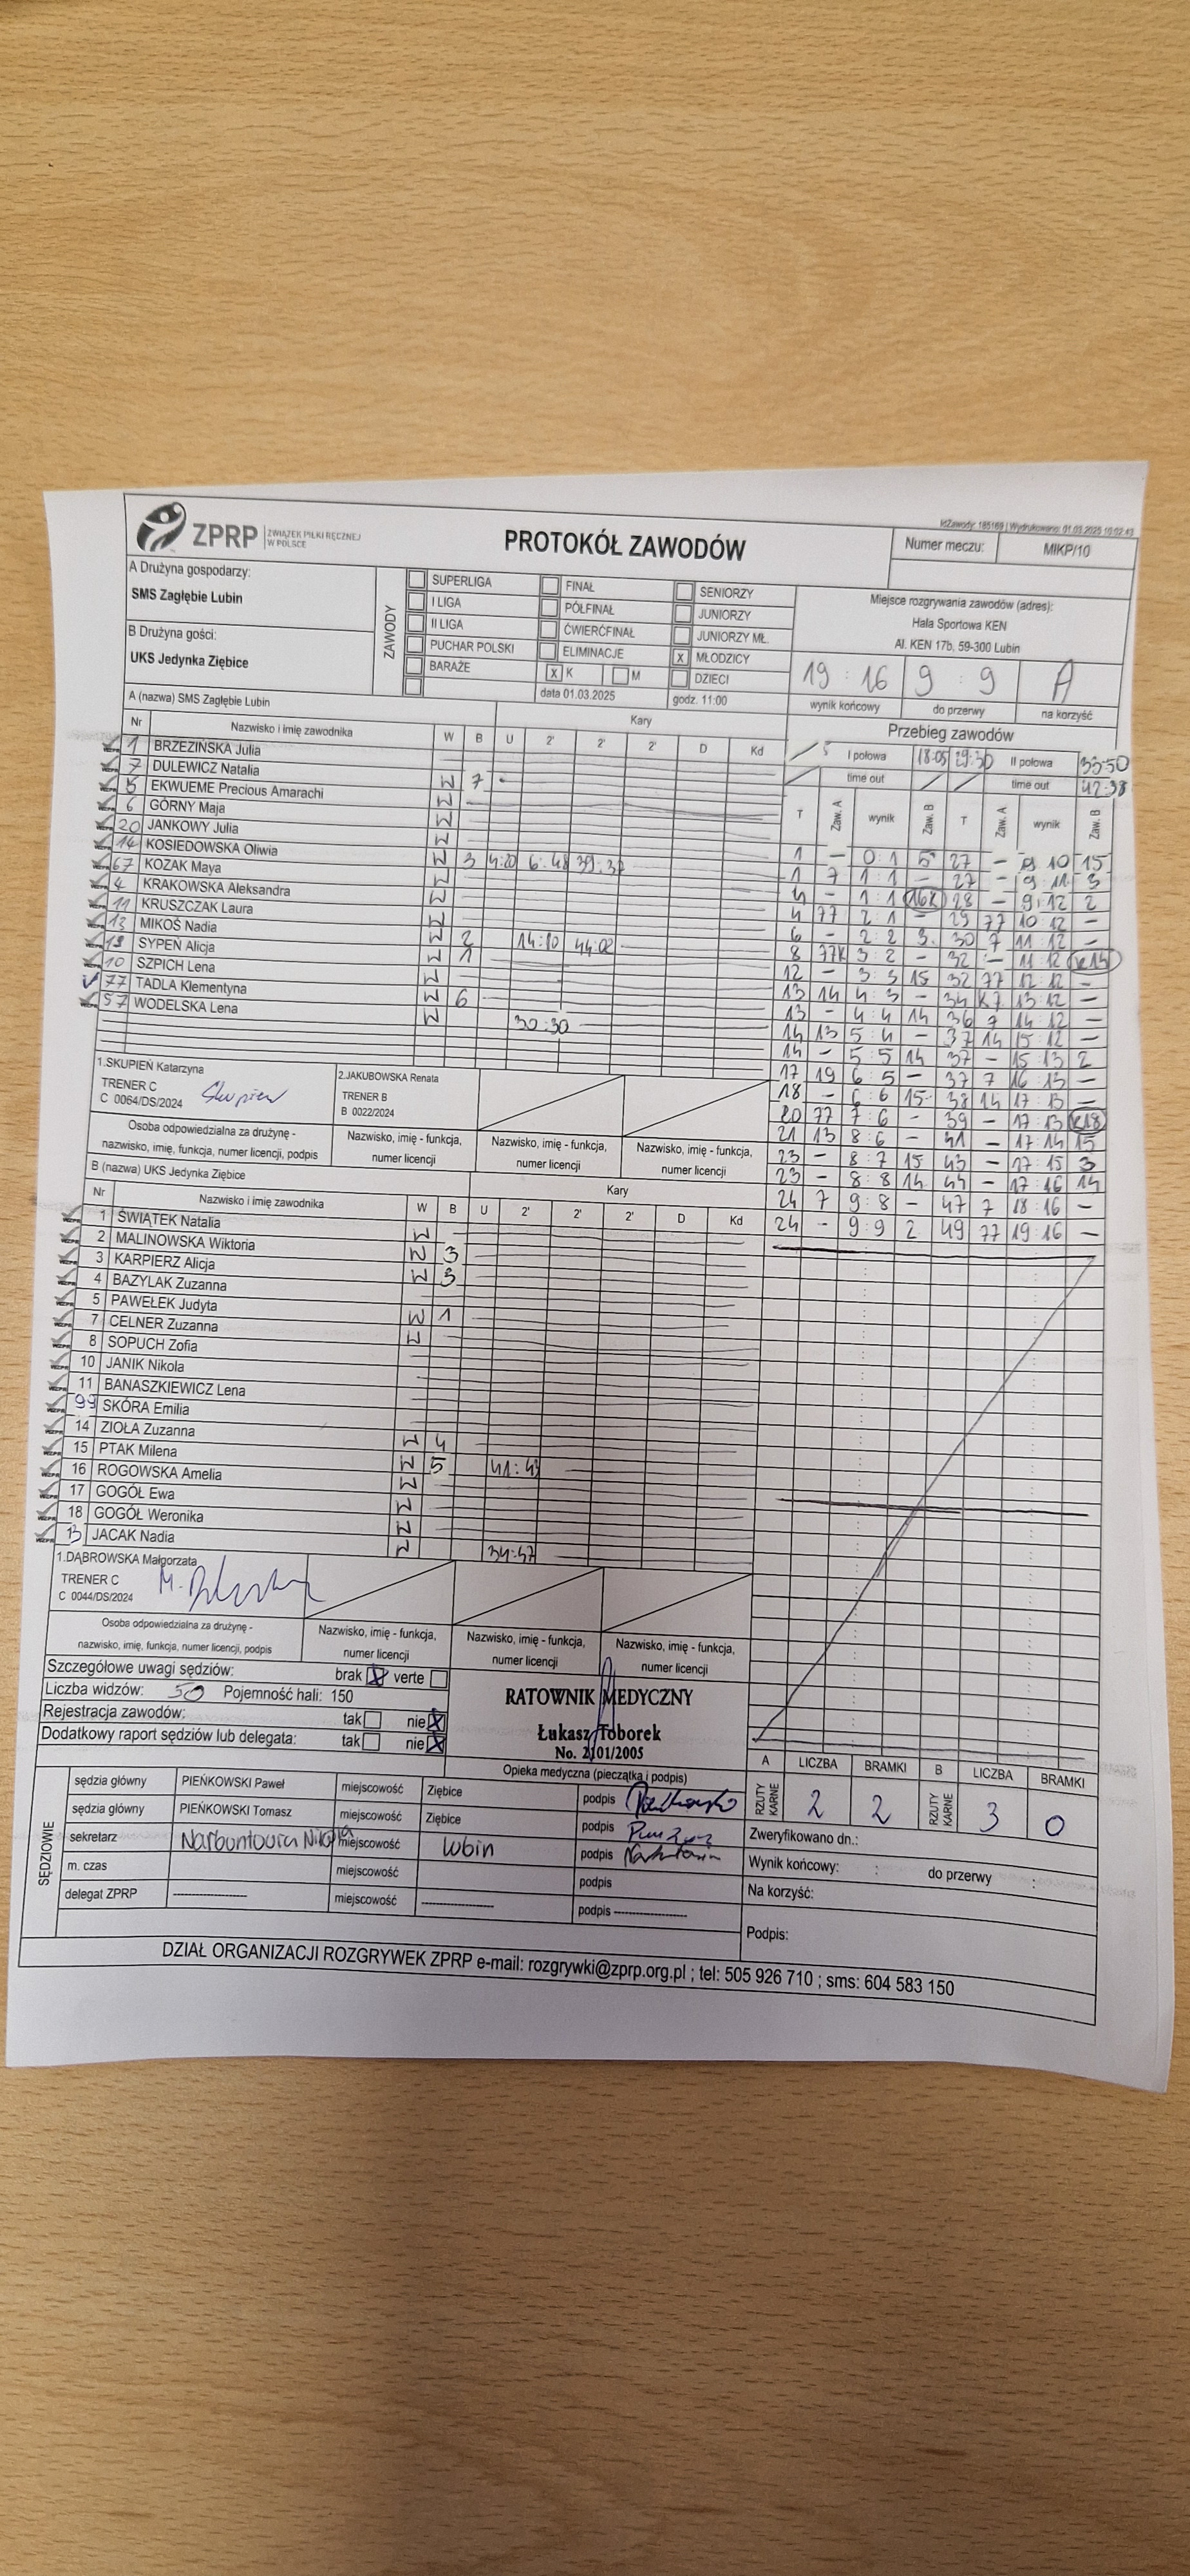 IdZawody: 185169 | Wydrukowano: 01.03.2025 10:02:43
ZPRP ZWIĄZEK PIŁKI RĘCZNEJ W POLSCE
PROTOKÓŁ ZAWODÓW
Numer meczu: MIKP/10
A Drużyna gospodarzy:
SMS Zagłębie Lubin
B Drużyna gości:
UKS Jedynka Ziębice
ZAWODY
SUPERLIGA FINAŁ SENIORZY
I LIGA PÓŁFINAŁ JUNIORZY
II LIGA ĆWIERĆFINAŁ JUNIORZY MŁ.
PUCHAR POLSKI ELIMINACJE X MŁODZICY
BARAŻE X K M DZIECI
data 01.03.2025 godz. 11:00
Miejsce rozgrywania zawodów (adres):
Hala Sportowa KEN
Al. KEN 17b, 59-300 Lubin
19 : 16 9 : 9 A
wynik końcowy do przerwy na korzyść
A (nazwa) SMS Zagłębie Lubin
Kary
Nr Nazwisko i imię zawodnika W B U 2' 2' 2' D Kd
1 BRZEZIŃSKA Julia
7 DULEWICZ Natalia W 7
5 EKWUEME Precious Amarachi W
6 GÓRNY Maja W
20 JANKOWY Julia W
14 KOSIEDOWSKA Oliwia W 3 4:20 6:48 39:37
67 KOZAK Maya W
4 KRAKOWSKA Aleksandra W
11 KRUSZCZAK Laura W
13 MIKOŚ Nadia W 2 14:10 44:02
19 SYPEŃ Alicja W 1
10 SZPICH Lena W
77 TADLA Klementyna W 6
57 WODELSKA Lena W 30:30
1.SKUPIEŃ Katarzyna
TRENER C
C 0064/DS/2024
2.JAKUBOWSKA Renata
TRENER B
B 0022/2024
Osoba odpowiedzialna za drużynę -
nazwisko, imię, funkcja, numer licencji, podpis
Nazwisko, imię - funkcja, numer licencji
Nazwisko, imię - funkcja, numer licencji
Nazwisko, imię - funkcja, numer licencji
B (nazwa) UKS Jedynka Ziębice
Kary
Nr Nazwisko i imię zawodnika W B U 2' 2' 2' D Kd
1 ŚWIĄTEK Natalia W
2 MALINOWSKA Wiktoria W 3
3 KARPIERZ Alicja W 3
4 BAZYLAK Zuzanna
5 PAWEŁEK Judyta W 1
7 CELNER Zuzanna W
8 SOPUCH Zofia
10 JANIK Nikola
11 BANASZKIEWICZ Lena
99 SKÓRA Emilia
14 ZIOŁA Zuzanna W 4
15 PTAK Milena W 5 41:43
16 ROGOWSKA Amelia W
17 GOGÓŁ Ewa W
18 GOGÓŁ Weronika W
13 JACAK Nadia W 34:47
1.DĄBROWSKA Małgorzata
TRENER C
C 0044/DS/2024
Osoba odpowiedzialna za drużynę -
nazwisko, imię, funkcja, numer licencji, podpis
Nazwisko, imię - funkcja, numer licencji
Nazwisko, imię - funkcja, numer licencji
Nazwisko, imię - funkcja, numer licencji
Przebieg zawodów
I połowa 18:05 29:30 II połowa 33:50
time out time out 42:38
T Zaw. A wynik Zaw. B T Zaw. A wynik Zaw. B
1 - 0:1 5 27 - 9:10 15
1 7 1:1 - 27 - 9:11 3
4 - 1:1 16K 28 - 9:12 2
4 77 2:1 - 29 77 10:12 -
6 - 2:2 3 30 7 11:12 -
8 77K 3:2 - 32 - 11:12
12 - 3:3 15 32 77 12:12 -
13 14 4:3 - 34 K7 13:12 -
13 - 4:4 14 36 7 14:12 -
14 13 5:4 - 37 14 15:12 -
14 - 5:5 14 37 - 15:13 2
17 19 6:5 - 37 7 16:13 -
18 - 6:6 15 38 14 17:13 -
20 77 7:6 - 39 - 17:13 K18
21 13 8:6 - 41 - 17:14 15
23 - 8:7 15 43 - 17:15 3
23 - 8:8 14 44 - 17:16 14
24 7 9:8 - 47 7 18:16 -
24 - 9:9 2 49 77 19:16 -
Szczegółowe uwagi sędziów: brak X verte
Liczba widzów: 50 Pojemność hali: 150
Rejestracja zawodów: tak nie X
Dodatkowy raport sędziów lub delegata: tak nie X
RATOWNIK MEDYCZNY
Łukasz Toborek
No. 2101/2005
Opieka medyczna (pieczątka i podpis)
A LICZBA BRAMKI B LICZBA BRAMKI
RZUTY KARNE 2 2 RZUTY KARNE 3 0
SĘDZIOWIE
sędzia główny PIEŃKOWSKI Paweł miejscowość Ziębice podpis
sędzia główny PIEŃKOWSKI Tomasz miejscowość Ziębice podpis
sekretarz miejscowość Lubin podpis
m. czas miejscowość podpis
delegat ZPRP ---------- miejscowość ---------- podpis ----------
Zweryfikowano dn.:
Wynik końcowy: : do przerwy :
Na korzyść:
Podpis:
DZIAŁ ORGANIZACJI ROZGRYWEK ZPRP e-mail: rozgrywki@zprp.org.pl ; tel: 505 926 710 ; sms: 604 583 150